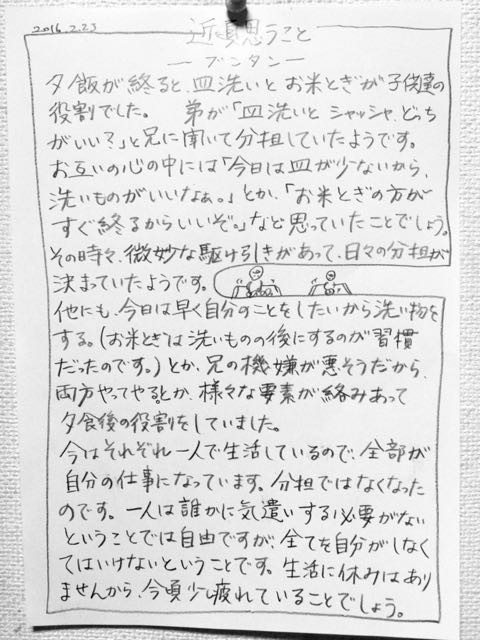 2016.2.23
近頃思うこと
―ブンタン―
夕飯が終ると、皿洗いとお米とぎが子供達の
役割でした。 弟が「皿洗いとシャッシャ、どっち
がいい？」と兄に聞いて分担していたようです。
お互いの心の中には「今日は皿が少ないから、
洗いものがいいなぁ。」とか、「お米とぎの方が
すぐ終るからいいぞ。」など思っていたことでしょう。
その時々、微妙な駆け引きがあって、日々の分担が
決まっていたようです。
他にも、今日は早く自分のことをしたいから洗い物を
する。(お米とぎは洗いものの後にするのが習慣
だったのです。)とか、兄の機嫌が悪そうだから、
両方やってやるとか、様々な要素が絡みあって
夕食後の役割をしていました。
今はそれぞれ一人で生活しているので、全部が
自分の仕事になっています。分担ではなくなった
のです。一人は誰かに気遣いする必要がない
ということでは自由ですが、全てを自分がしなく
てはいけないということです。生活に休みはあり
ませんから、今頃少し疲れていることでしょう。